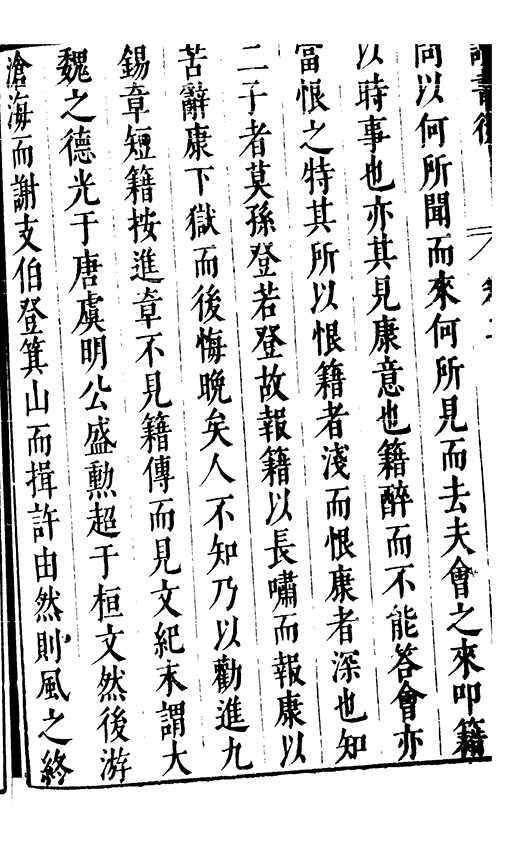 讀書後
卷二
問以何所聞而來何所見而去夫會之來叩籍
以時事也亦其見康意也籍醉而不能答會亦
當恨之特其所以恨籍者淺而恨康者深也知
二子者莫孫登若登故報籍以長嘯而報康以
苦辭康下獄而後悔晚矣人不知乃以勸進九
錫章短籍按進章不見籍傳而見文紀末謂大
魏之德光于唐虞明公盛勲超于桓文然後游
滄海而謝支伯登箕山而揖許由然則風之終